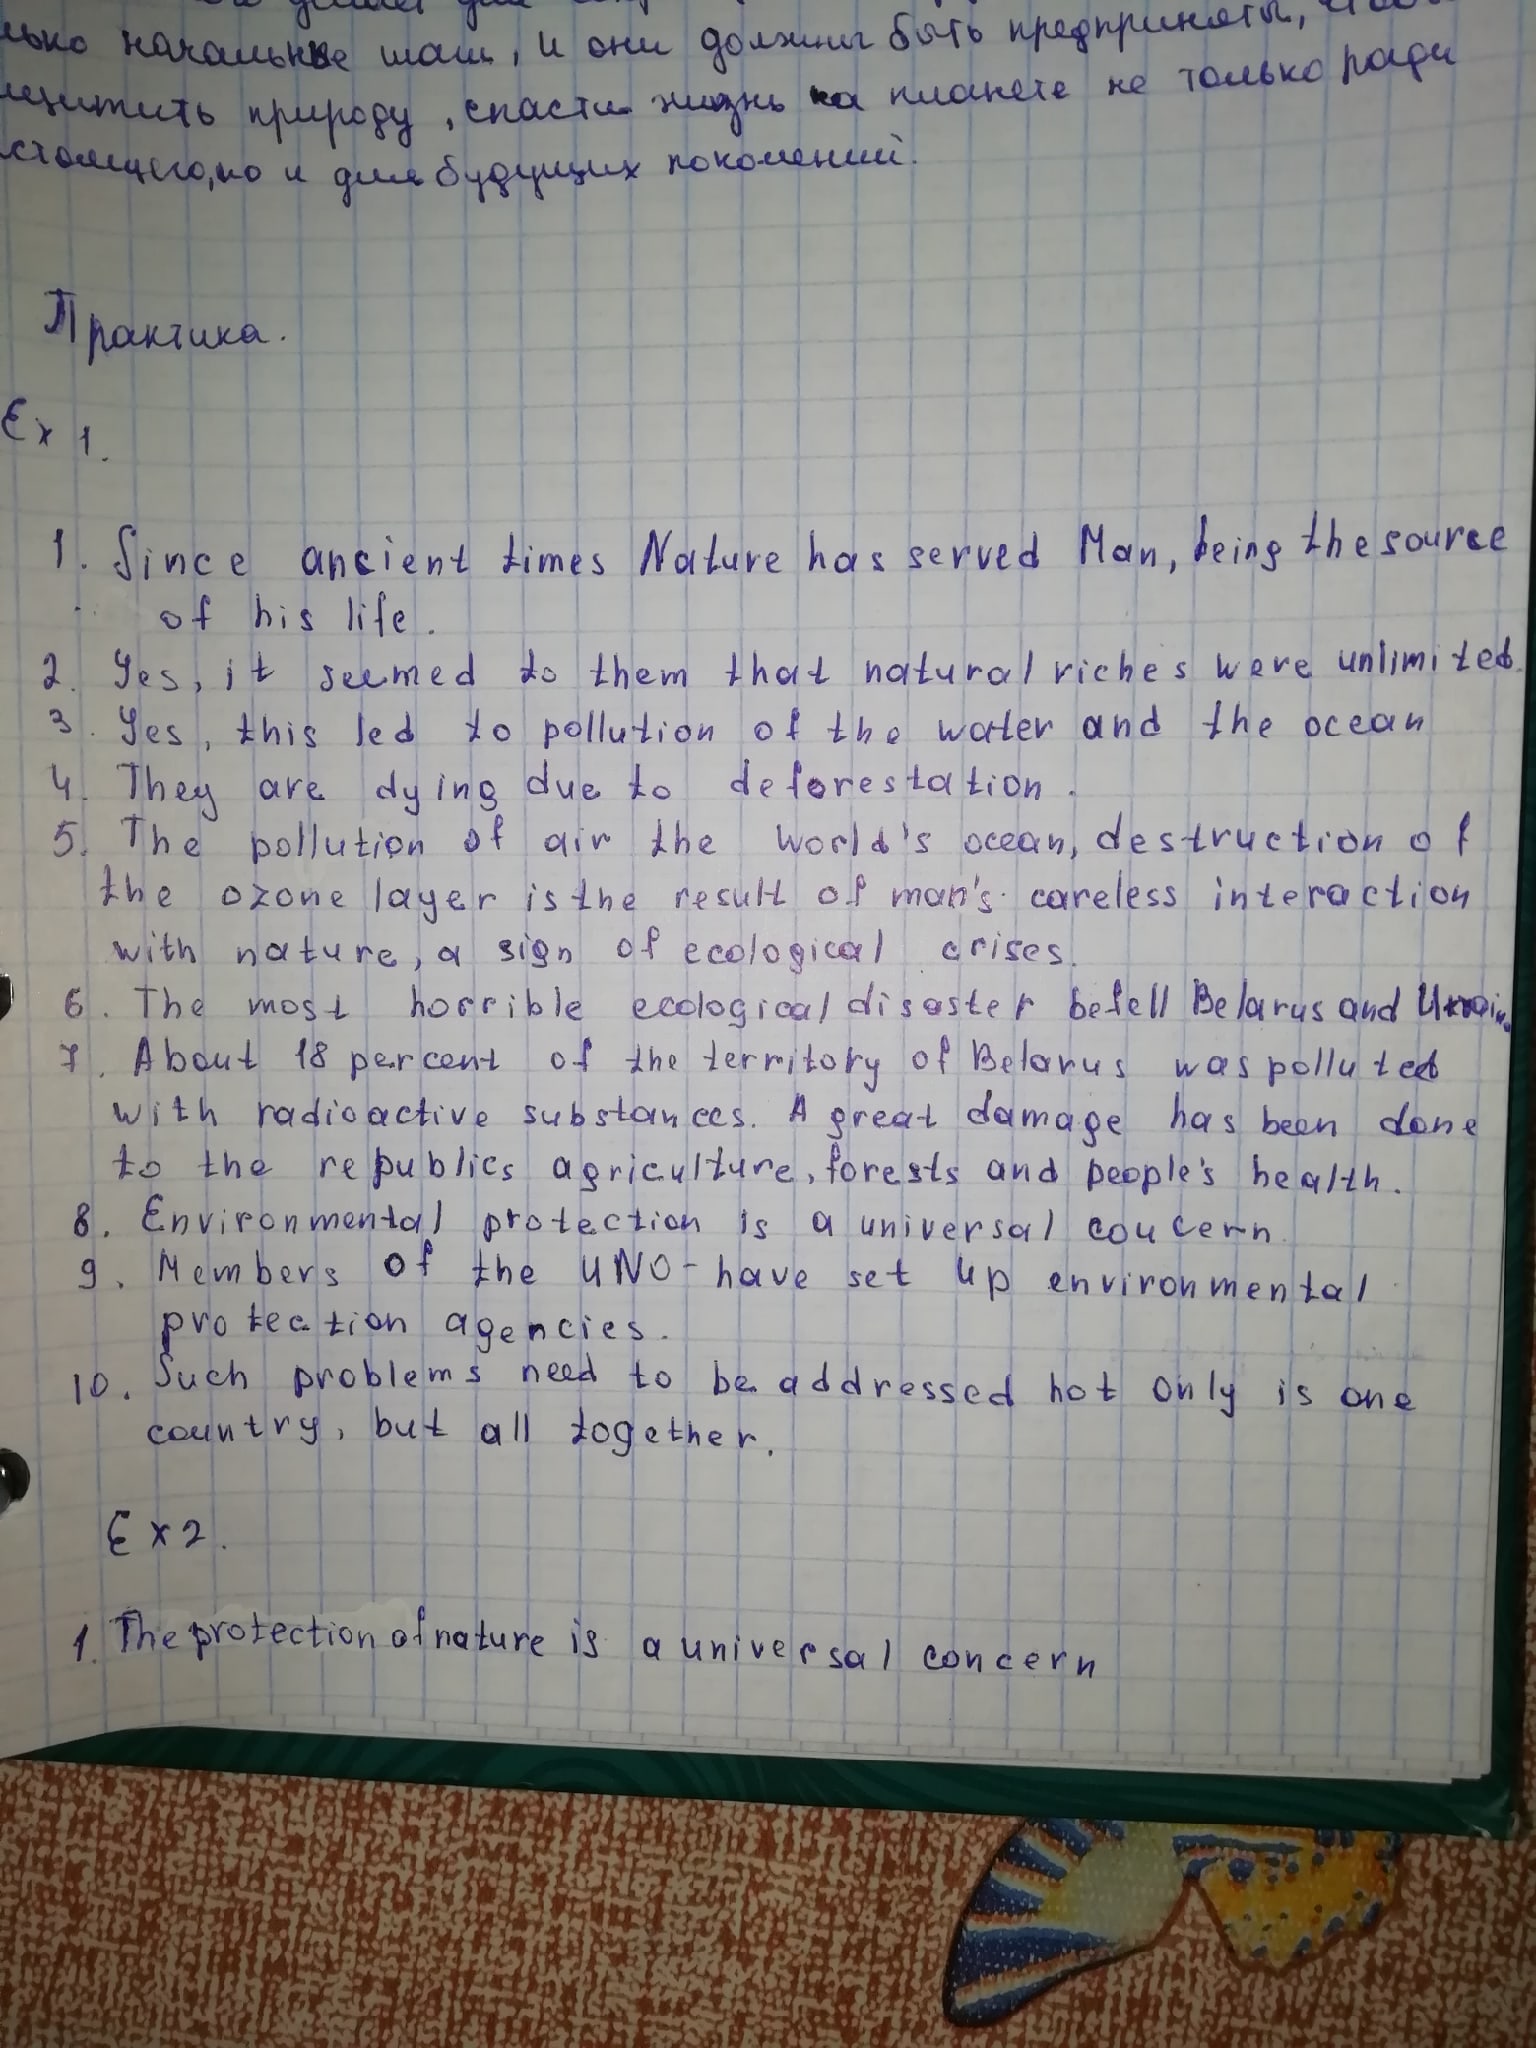 начальные шаги, и они должны быть предприняты,
природу, спасти жизнь на планете не только ради
но и для будущих поколений.
Практика.
Ex 1.
1. Since ancient times Nature has served Man, being the source
of his life.
2. Yes, it seemed to them that natural riches were unlimited.
3. Yes, this led to pollution of the water and the ocean
4. They are dying due to deforestation.
5. The pollution of air the world's ocean, destruction of
the ozone layer is the result of man's careless interaction
with nature, a sign of ecological crises.
6. The most horrible ecological disaster befell Belarus and Ukraine
7. About 18 percent of the territory of Belarus was polluted
with radioactive substances. A great damage has been done
to the republics agriculture, forests and people's health.
8. Environmental protection is a universal concern
9. Members of the UNO - have set up environmental
protection agencies.
10. Such problems need to be addressed not only is one
country, but all together.
Ex 2.
1. The protection of nature is a universal concern